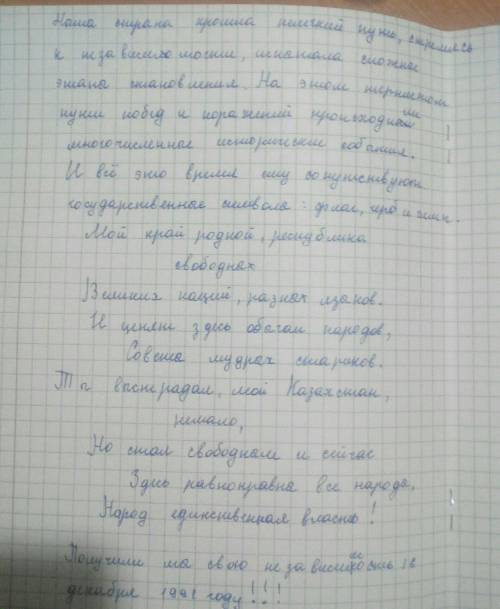 Наша страна прошла нелегкий путь, стремясь
к независимости, испытала сложные
этапы становления. На этом тернистом
пути побед и поражений происходили
многочисленные исторические события.
И всё это время ему сопутствуют
государственные символы: флаг, герб и гимн.
Мой край родной, республика
свободных
Великих наций, разных языков.
И ценят здесь обычаи народов,
Советы мудрых стариков.
Ты выстрадал, мой Казахстан,
немало,
Но стал свободным и сейчас
Здесь равноправны все народы.
Народ единственная власть!
Получили мы свою независимость 16
декабря 1991 году!!!